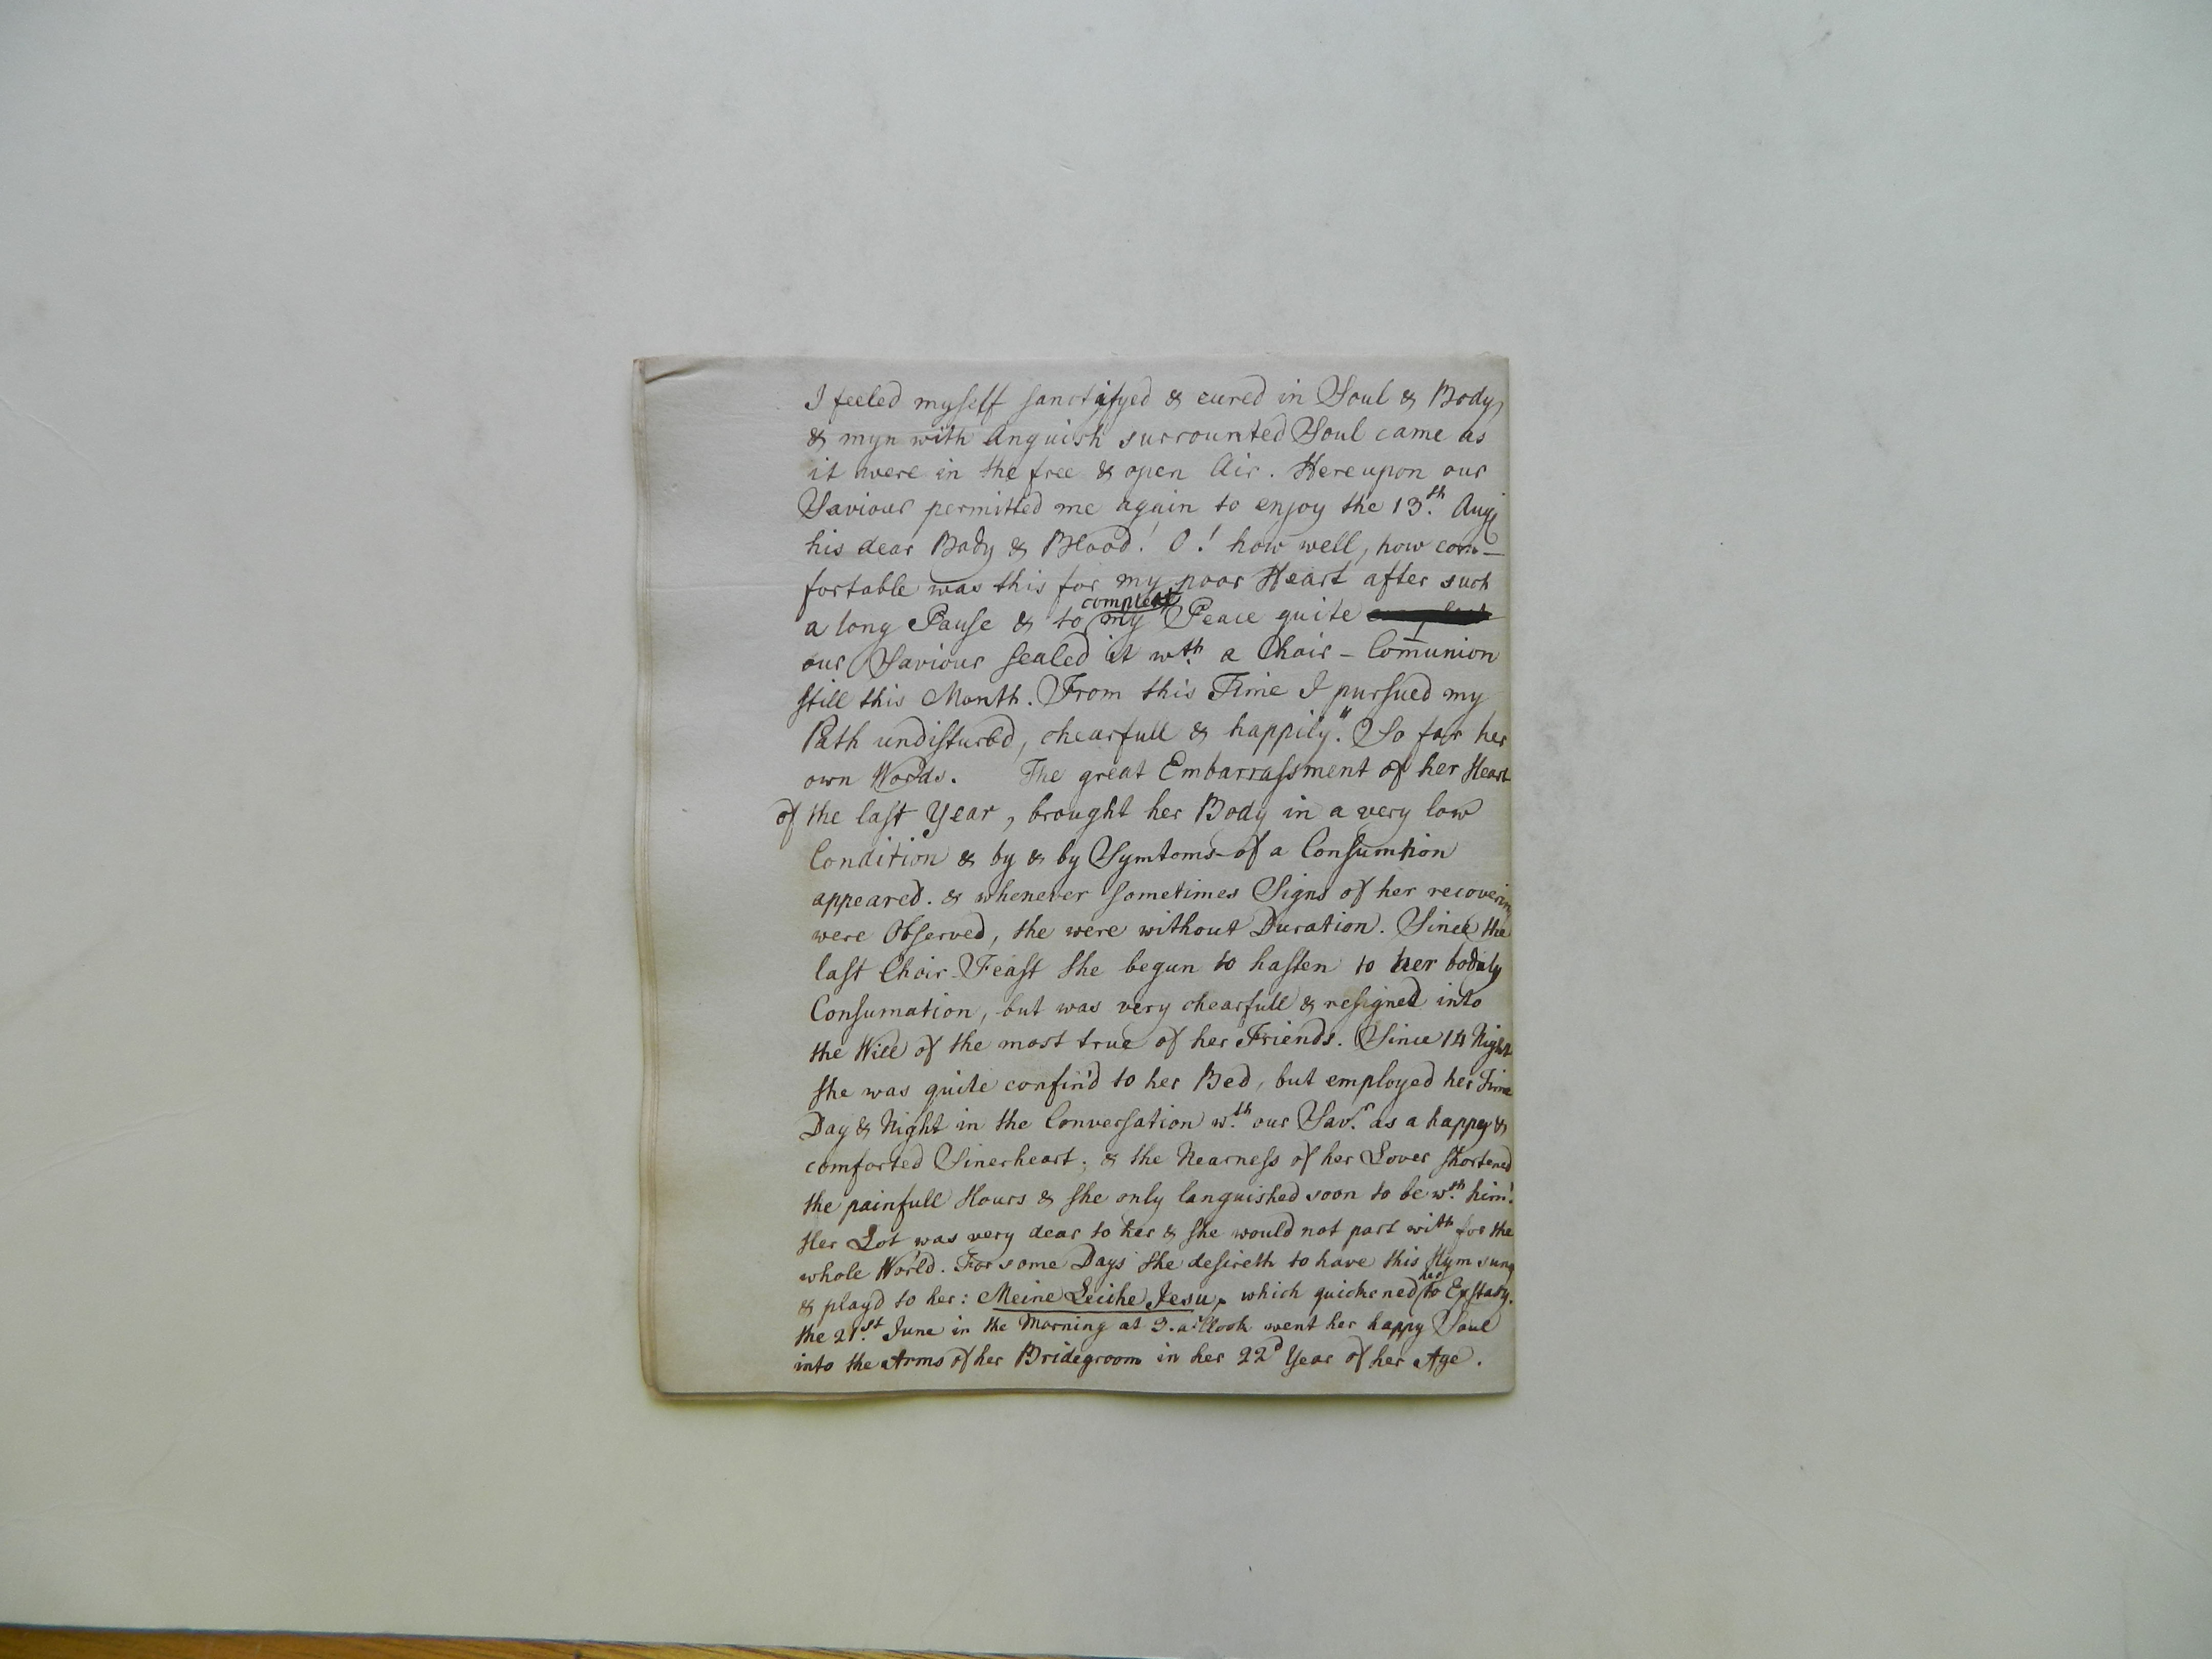 I feeled myself sanctifyed & cured in Soul & Body,
& myn with Anguish surrounted Soul came as
it were in the free & open Air. Hereupon our
Saviour permitted me again to enjoy the 13.th Aug
his dear Body & Blood! O! how well, how com-
fortable was this for my poor Heart after such
a long Pause & to compleat my Peace quite
our Saviour sealed it wth. a Choir-Comunion
still this Month. From this Time I pursued my
Path undisturbd, chearfull & happily." So far her
own Words. The great Embarrassment of her Heart
of the last Year, brought her Body in a very low
Condition & by & by Symtoms of a Consumtion
appeared. & whenever sometimes Signs of her recovering
were Observed, the were without Duration. Since the
last Choir-Feast she begun to hasten to her bodaly
Consumation, but was very chearfull & resigned into
the Will of the most true of her Friends. Since 14 Night
she was quite confin'd to her Bed, but employed her Time
Day & Night in the Conversation w.th our Sav.r as a happy &
comforted Sinerheart; & the Nearness of her Lover shortened
the painfull Hours & she only languished soon to be w.th him!
Her Lot was very dear to her & she would not part with for the
whole World. For some Days she desireth to have this Hym sung
& play'd to her: Meine Leiche Jesu, which quickened her to Exstasy.
the 21.st June in the Morning at 3. a'Clock went her happy Soul
into the Arms of her Bridegroom in her 22d Year of her Age.